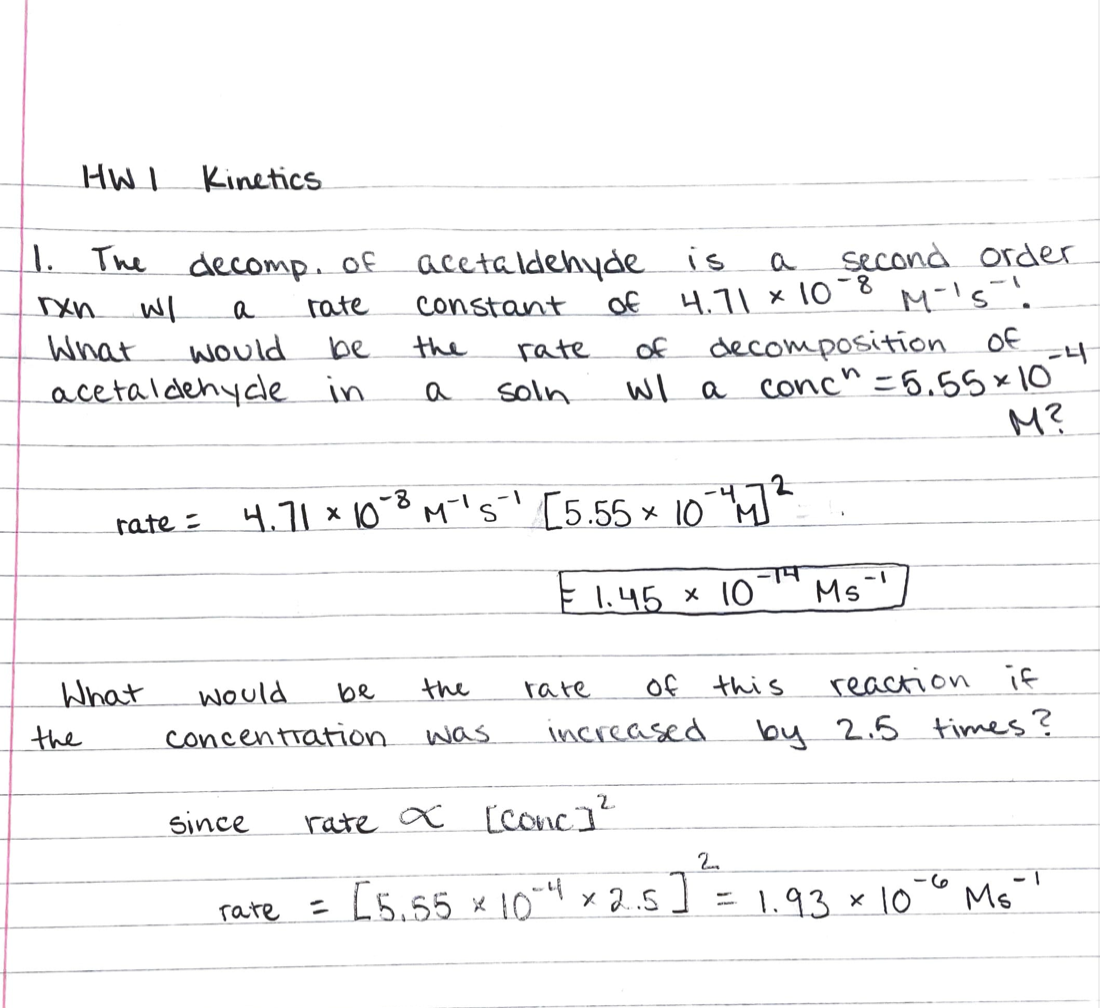 HW 1 Kinetics
1. The decomp. of acetaldehyde is a second order
rxn w/ a rate constant of 4.71 × 10⁻⁸ M⁻¹s⁻¹.
What would be the rate of decomposition of
acetaldehyde in a soln w/ a concⁿ = 5.55 × 10⁻⁴
M?
rate = 4.71 × 10⁻⁸ M⁻¹s⁻¹ [5.55 × 10⁻⁴M]²
= 1.45 × 10⁻¹⁴ Ms⁻¹
What would be the rate of this reaction if
the concentration was increased by 2.5 times?
since rate ∝ [conc]²
rate = [5.55 × 10⁻⁴ × 2.5]² = 1.93 × 10⁻⁶ Ms⁻¹